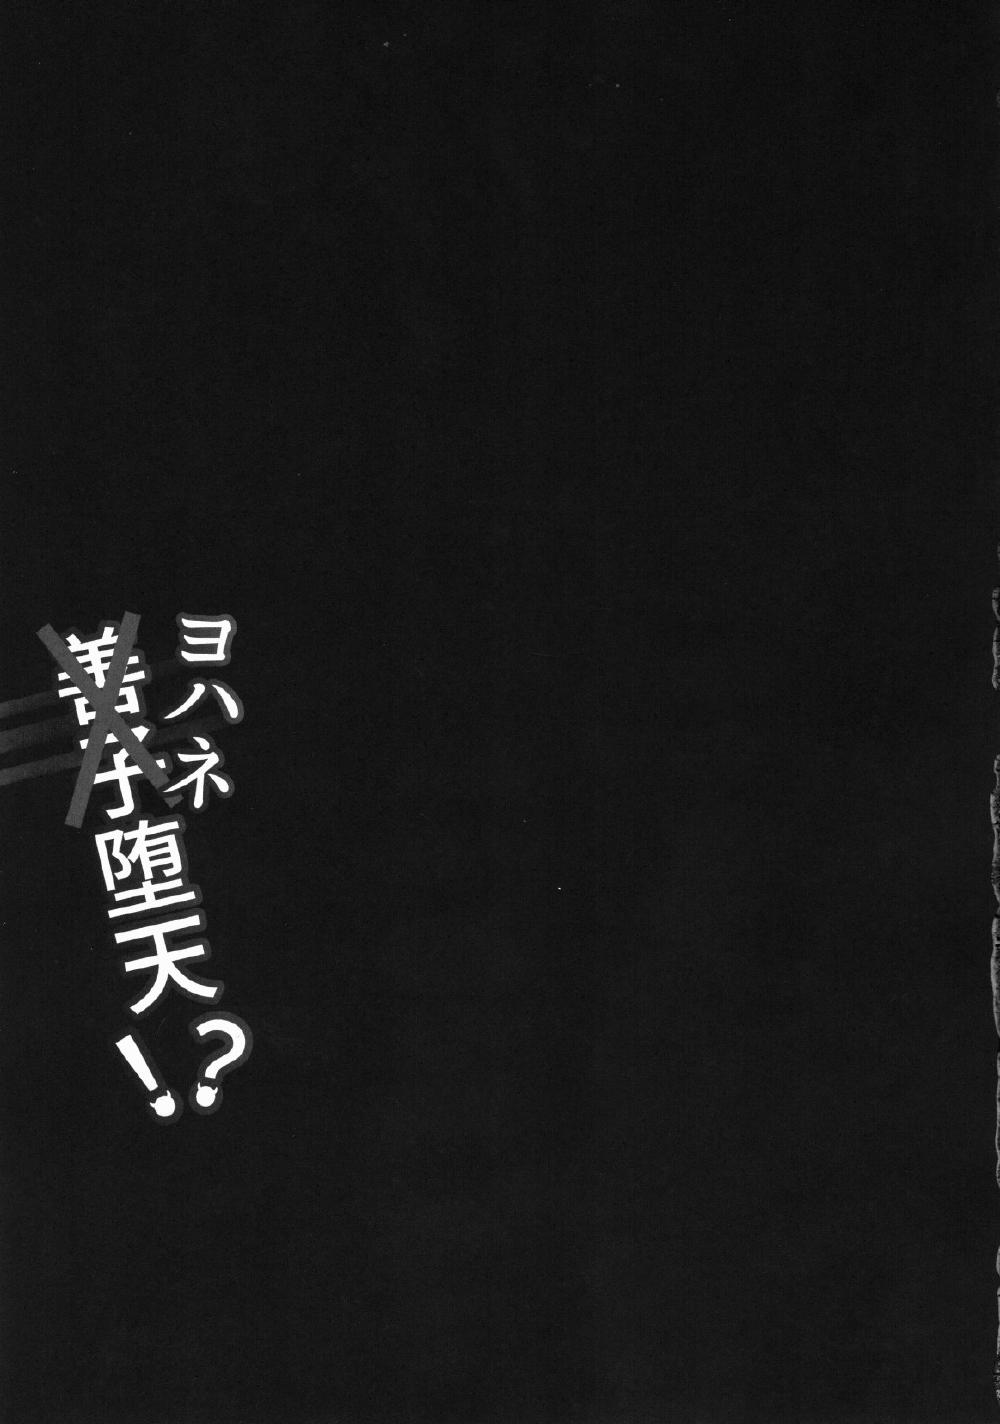 ヨハネ
善子堕天!?